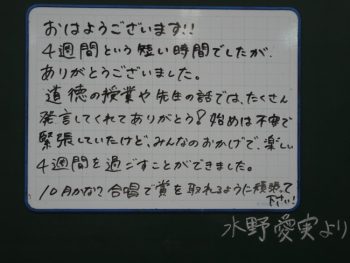 おはようございます!!
4週間という短い時間でしたが、
ありがとうございました。
道徳の授業や先生の話では、たくさん
発言してくれてありがとう?始めは不安で
緊張していたけど、みんなのおかげで、楽しい
4週間を過ごすことができました。
10月かな?合唱で賞を取れるように頑張って
下さい!
水野愛実より